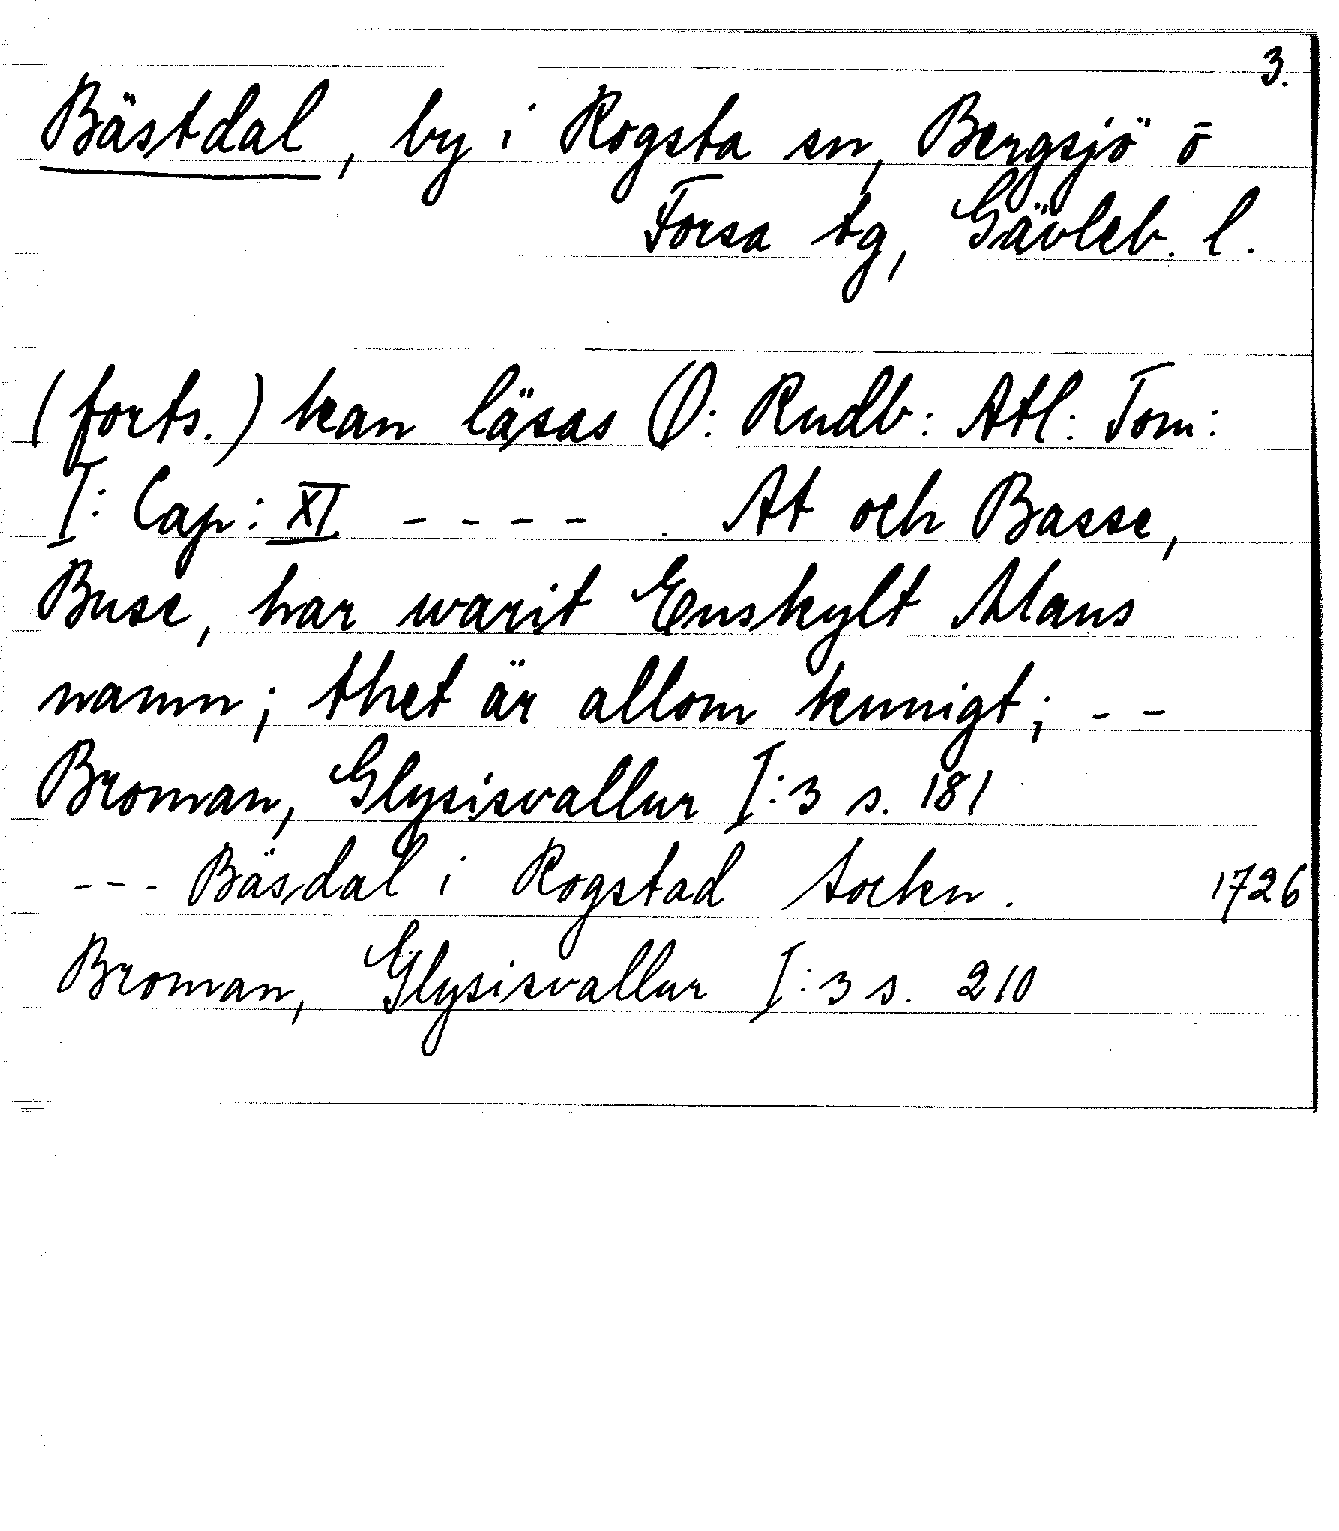 3.
Bästdal, by i Rogsta sn, Bergsjö o
Forsa tg, Gävleb. l.
(forts.) kan läsas O: Rudb: Atl: Tom:
I: Cap: XI - - - - . At och Basse,
Buse, har warit Enskylt Mans
namn; thet är allom kunigt; - -
Broman, Glysisvallur I:3 s. 181
- - - Bäsdal i Rogstad Sockn. 1726
Broman, Glysisvallur I:3 s. 210